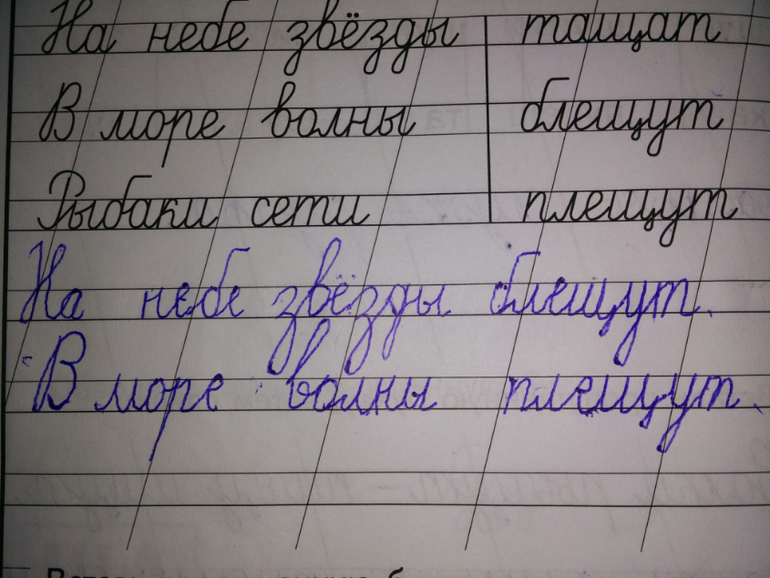 На небе звёзды тащат
В море волны блещут
Рыбаки сети плещут
На небе звёзды блещут.
В море волны плещут.